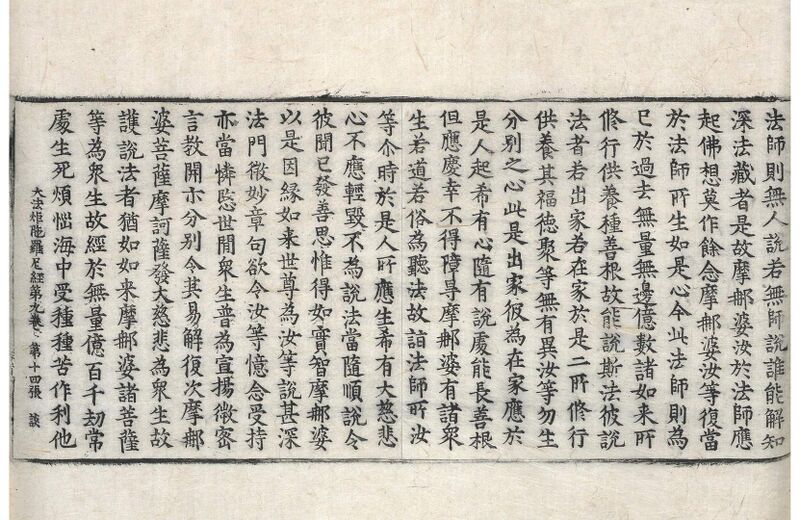 法師則無人說若無師說誰能解知
深法藏者是故摩郍婆汝於法師應
起佛想莫作餘念摩郍婆汝等復當
於法師所生如是心今此法師則為
已於過去無量無邊億數諸如来所
修行供養種善根故能說斯法彼說
法者若出家若在家於是二所修行
供養其福德聚等無有異汝等勿生
分別之心此是出家彼為在家應於
是人起希有心隨有說處能長善根
但應慶幸不得障㝵摩郍婆有諸衆
生若道若俗為聽法故詣法師所汝
等尒時於是人所應生希有大慈悲
心不應輕毀不為說法當隨順說令
彼聞已發善思惟得如實智摩郍婆
以是因緣如来世尊為汝等說甚深
法門微妙章句欲令汝等憶念受持
亦當憐愍世間衆生普為宣揚微密
言教開亦分別令其易解復次摩郍
婆菩薩摩訶薩發大慈悲為衆生故
護說法者猶如如来摩郍婆諸菩薩
等為衆生故經於無量億百千劫常
處生死煩惱海中受種種苦作利他
大法炬陁羅尼經第九卷 第十四張 談